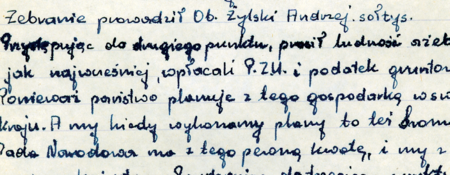 Zebranie prowadził Ob. Żylski Andrzej. sołtys.
Przystępując do drugiego punktu, prosił ludność ażeb
jak najwcześniej, wpłacali P.Z.U. i podatek grunto
Ponieważ państwo planuje z tego gospodarką w sw
kraju. A my kiedy wykonamy plany to też Grom
Rada Narodowa ma z tego pewną kwotę, i my z